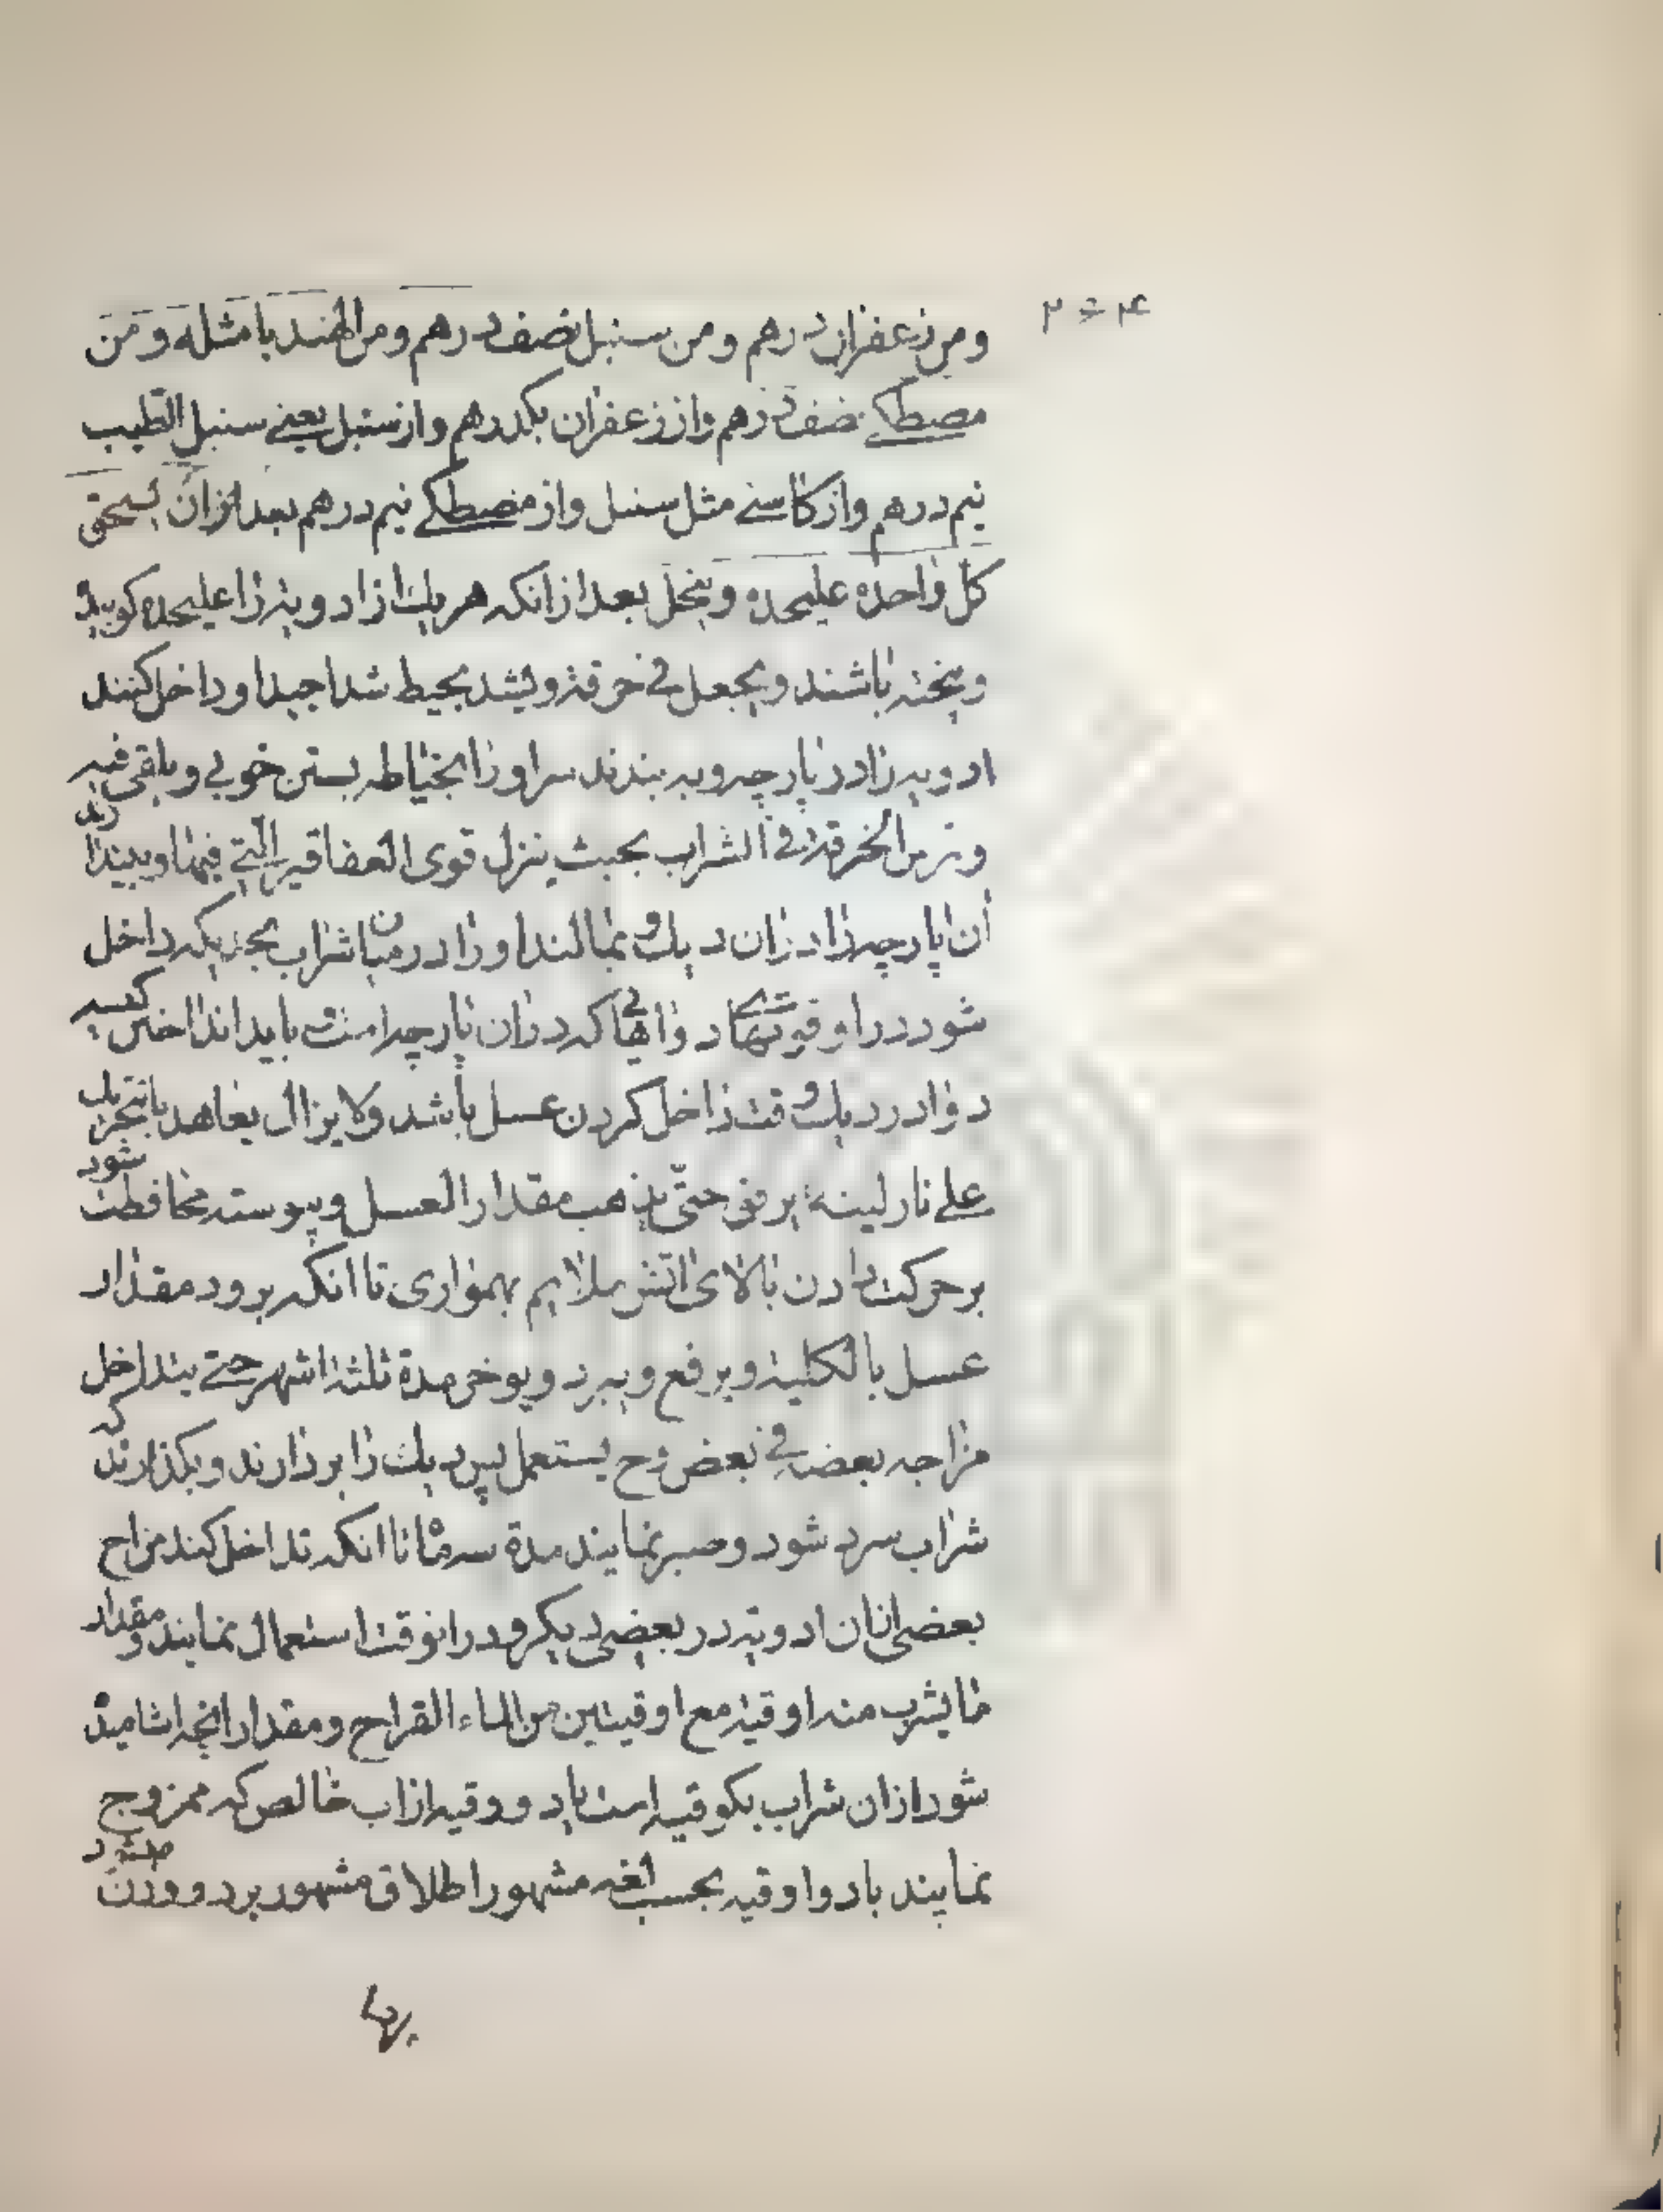 ومن زعفران درهم ومن سنبل نصف درهم ومن الهندبا مثله ومن
مصطکی نصف درهم واز زعفران یکدرهم واز سنبل یعنے سنبل الطیب
نیم درهم واز کاسنے مثل سنبل واز مصطکے نیم درهم بعد ازان یسحق
کل واحده علیحده وینخل بعد از انکه هر یك از ادویه را علیحده کوبیده
وپخته باشند ویجعل فے خرقة ویشد بخیط شدا جیدا وداخل کنند
ادویه را در پارچه وبه بندند سر او را بخیاطه بستن خوبی ویلقی فیه
وتمرس الخرقة فی الشراب بحیث ینزل قوی العقاقیر التے فیها وبیندازند
آن پارچه را در آن دیك وبمالند او را در میان شراب بحدیکه داخل
شود در او قوتهای دواهائی که در آن پارچه است وباید انداختن کیسه
دوا در دیك وقت داخل کردن عسل باشد ولا یزال یعاهد بالتحریك
علے نار لینة برفق حتّی یذهب مقدار العسل وپیوسته محافظت شود
بر حرکت دادن بالای اتش ملایم بهمواری تا انکه برود مقدار
عسل بالکلیة ویرفع ویبرد ویوخر مدة ثلثة اشهر حتے یتداخل
مزاجه بعضه فے بعض وح یستعمل پس دیك را بردارند وبکذارند که
شراب سرد شود وصبر نمایند مدة سه ماه تا انکه تداخل کند مزاج
بعضی از ان ادویه در بعضی دیکر ودر انوقت استعمال نمایند ومقدار
ما یشرب منه اوقیة مع اوقیتین من الماء القراح ومقدار انچه اشامیده
شود ازان شراب یکوقیه است با دو وقیه از اب خالص که ممزوج
نمایند با دوا وقیه بحسب لغه مشهور اطلاق مشهور بر دو وزن میشود
بهها
۲۶۴